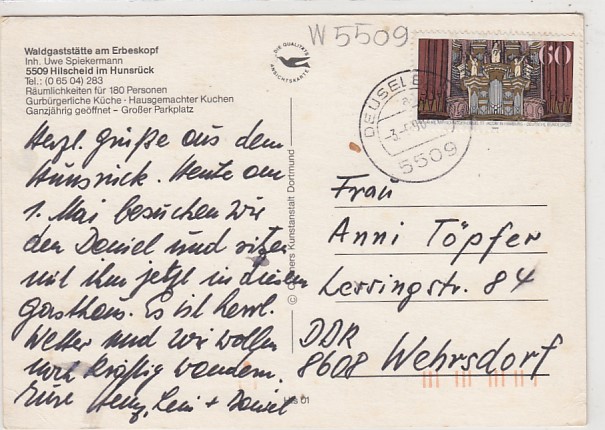 Waldgaststätte am Erbeskopf
Inh. Uwe Spiekermann
5509 Hilscheid im Hunsrück
Tel.: (0 65 04) 283
Räumlichkeiten für 180 Personen
Gurbürgerliche Küche · Hausgemachter Kuchen
Ganzjährig geöffnet – Großer Parkplatz
DIE QUALITÄTS
ANSICHTSKARTE
W 5509
60
DEUSEL
5509
Herzl. grüße aus dem
Hunsrück. Heute am
1. Mai besuchen wir
den Daniel und sitzen
mit ihm jetzt in diesem
gasthaus. Es ist herrl.
Wetter und wir wollen
noch kräftig wandern.
Eure Heinz, Leni + Daniel
Kunstanstalt Dortmund
Frau
Anni Töpfer
Lessingstr. 84
DDR
8608 Wehrsdorf
01